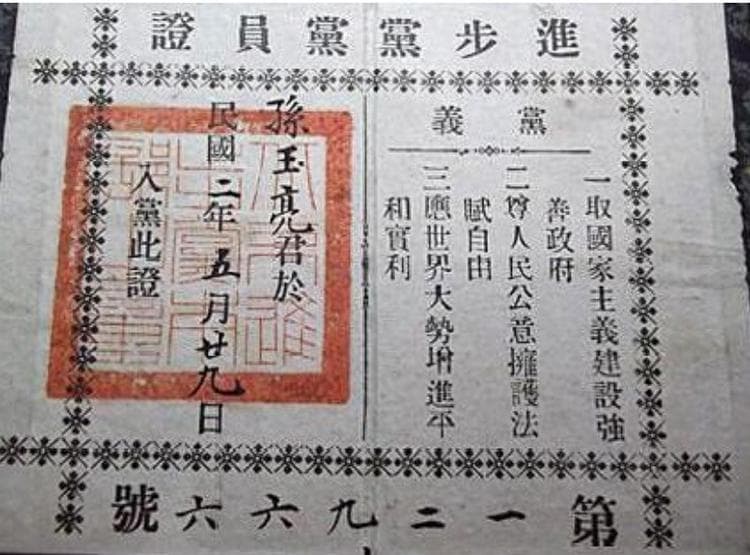 進步黨黨員證
黨義
一取國家主義建設強
善政府
二尊人民公意擁護法
賦自由
三應世界大勢增進平
和實利
孫玉亮君於
民國二年五月廿九日
入黨此證
第一二九六六號